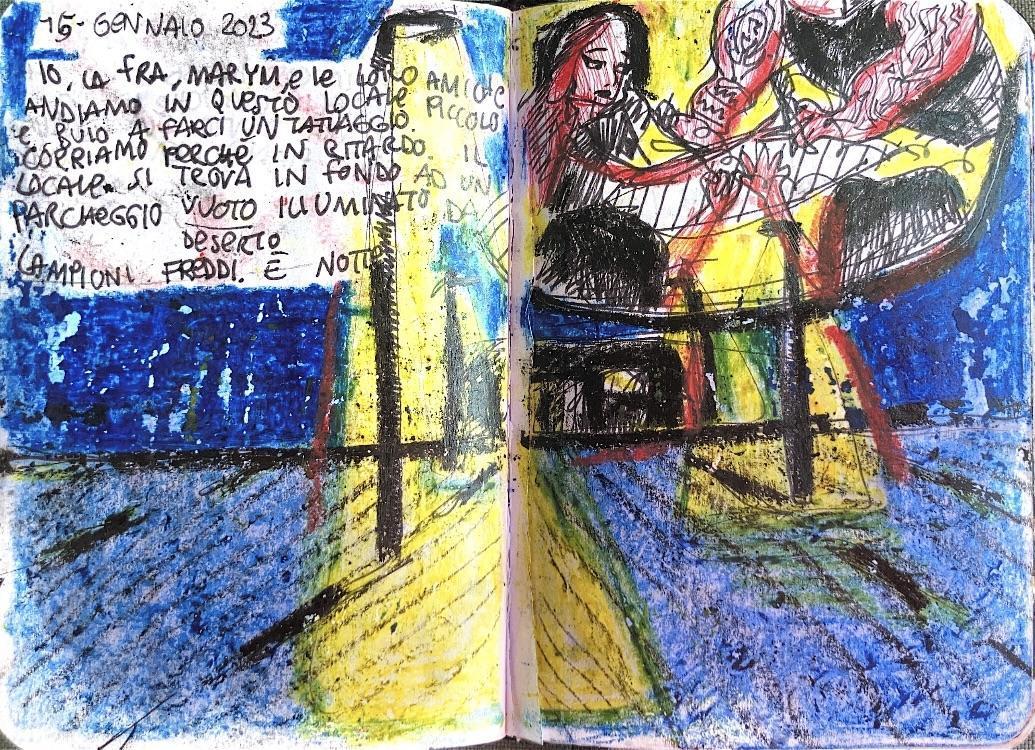 15- GENNAIO 2023
IO, LA FRA, MARYM, e le LORO AMICHE
ANDIAMO IN QUESTO LOCALE PICCOLO
e BUIO A FARCI UN TATUAGGIO.
CORRIAMO PERCHE IN RITARDO. IL
LOCALE SI TROVA IN FONDO AD UN
PARCHEGGIO VUOTO ILLUMINATO DA
DESERTO
LAMPIONI FREDDI. È NOTTE